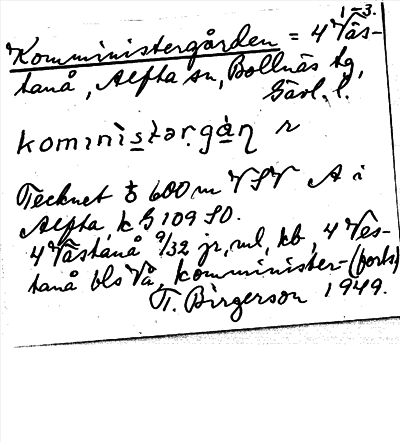 1-3.
Komministergården = 4 Väs-
tanå, Alfta sn, Bollnäs tg,
Gävl. l.
kominìstərgàɳ r
Tecknet ♁ 600 m VSV A i
Alfta, k G 109 SO.
4 Västanå 9/32 jr, ml, kb, 4 Ves-
tanå bls Vå, komminister- (forts)
T. Birgerson 1949.